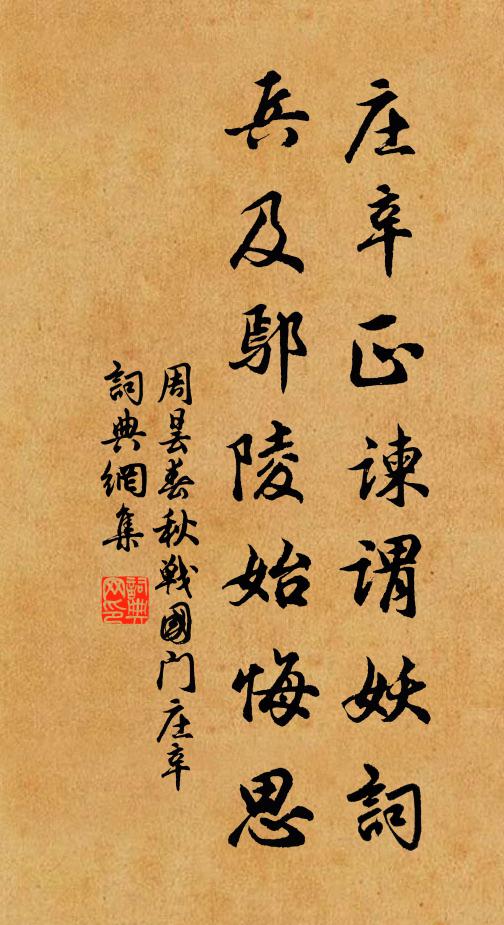 庄辛正諫謂妖詞
兵及鄢陵始悔思
周昙春秋戰國门庄辛
詞典網集
詞典网印